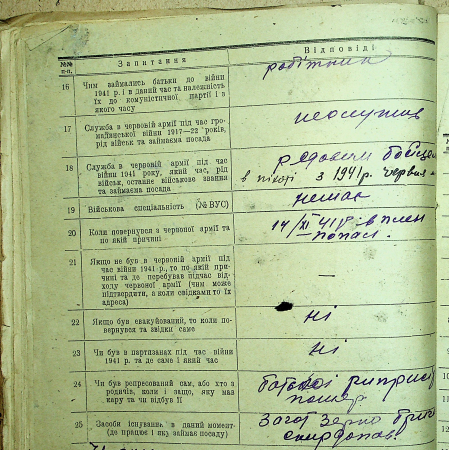 №№ п-п.
Запитання
Відповіді
16
Чим займались батьки до війни
1941 р. і в даний час та належність
їх до комуністичної партії і з
якого часу
робітник
17
Служба в червоній армії під час гро-
мадянської війни 1917—22 років,
рід військ та займаєма посада
неслужив
18
Служба в червоній армії під час
війни 1941 року, який час, рід
військ, останнє військове звання
та займаєма посада
рядовим бойцем
в пікоті з 1941 р. червня
19
Військова спеціяльність (№ ВУС)
немає
20
Коли повернувся з червоної армії та
по якій причині
14/XI 41 р. в плен
попав.
21
Якщо не був в червоній армії під
час війни 1941 р., то по якій при-
чині та де перебував підчас від-
ходу червоної армії (чим може
підтвердити, а коли свідками то їх
адреса)
—
22
Якщо був евакуйований, то коли по-
вернувся та звідки саме
ні
23
Чи був в партизанах під час війни
1941 р. та де саме і який час
ні
24
Чи був репресований сам, або хто з
родичів, коли і защо, яку мав
кару та чи відбув її
помер
25
Засоби існування в даний момент
(де працює і яку займає посаду)
Загот Зерно